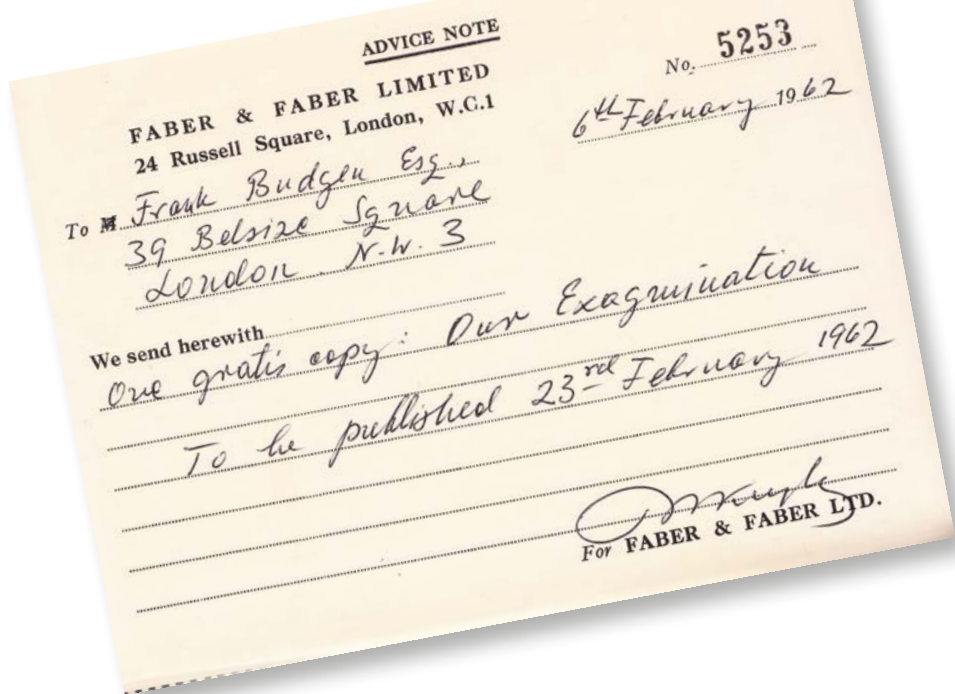 ADVICE NOTE
No. 5253
FABER & FABER LIMITED
24 Russell Square, London, W.C.1
6th February 1962
To M Frank Budgen Esq.,
39 Belsize Square
London N.W. 3
We send herewith
One gratis copy: Our Exagmination
To be published 23rd February 1962
For FABER & FABER LTD.